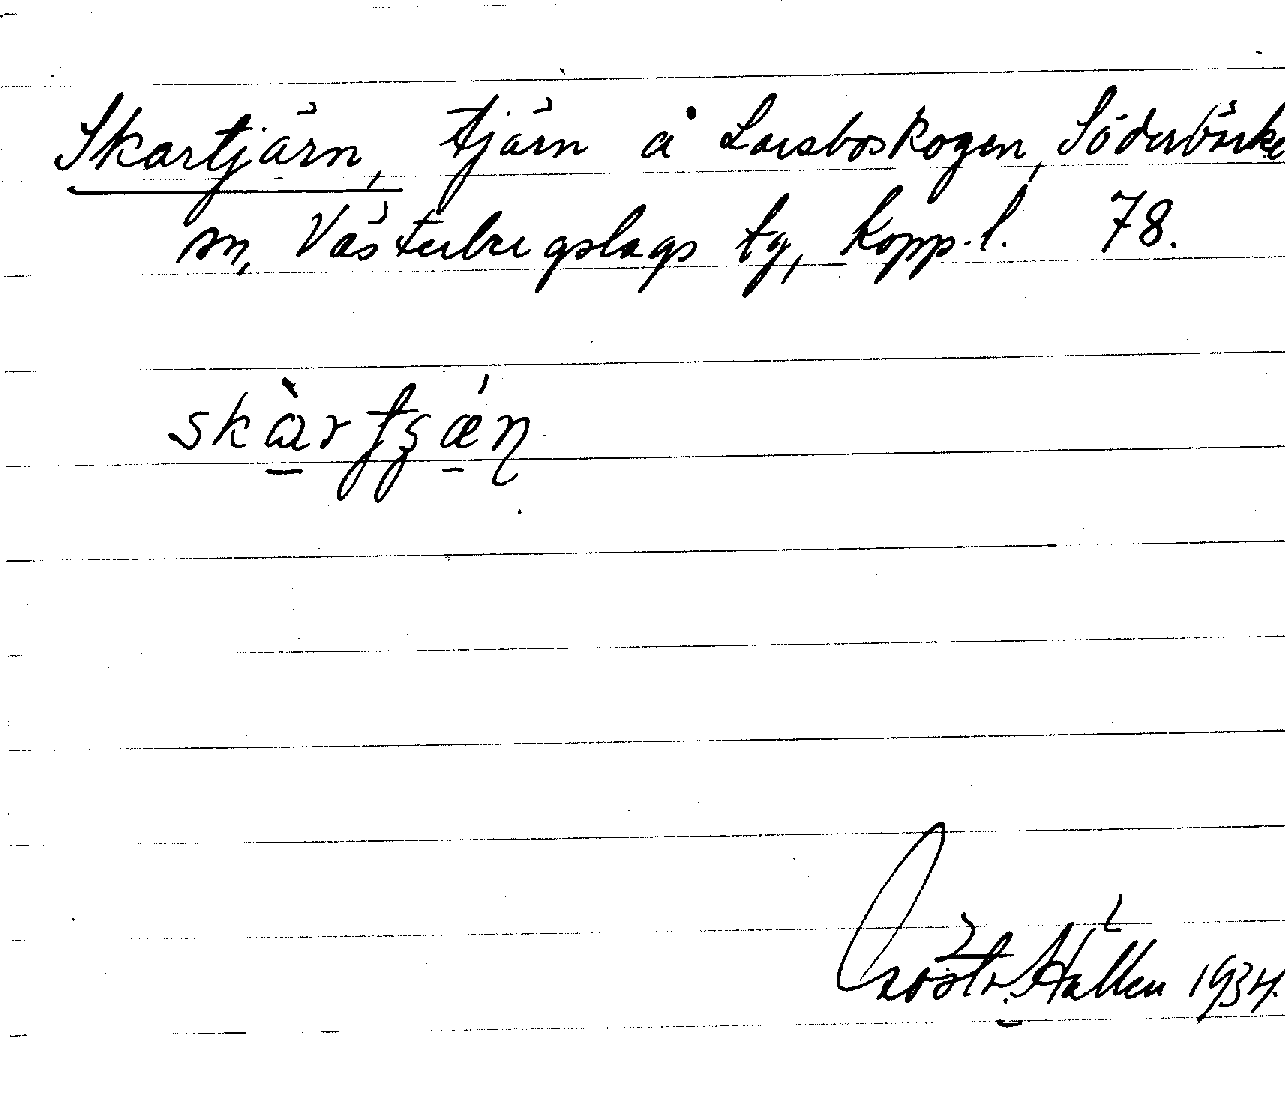 Skartjärn, tjärn å Larsboskogen, Söderbärke
sn, Västerbergslags tg, Kopp. l. 78.
skàrtʂǽn
Hällén 1934.